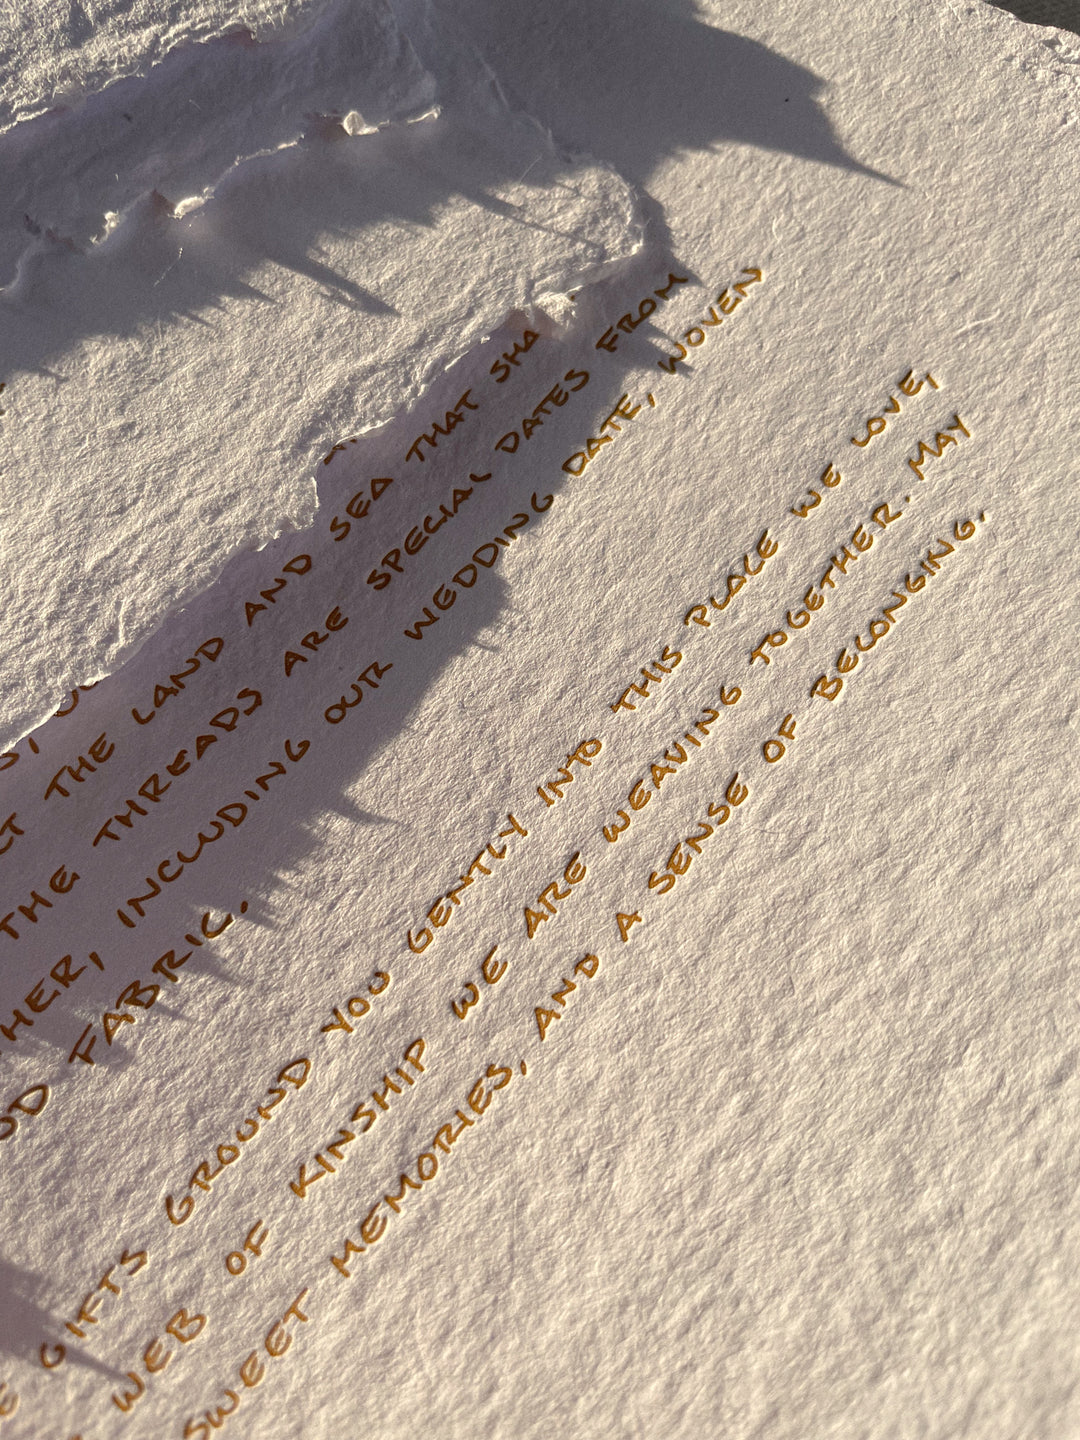 THE LAND AND SEA THAT
THE THREADS ARE SPECIAL DATES FROM
INCLUDING OUR WEDDING DATE, WOVEN
FABRIC.
GIFTS GROUND YOU GENTLY INTO THIS PLACE WE LOVE,
WEB OF KINSHIP WE ARE WEAVING TOGETHER. MAY
SWEET MEMORIES, AND A SENSE OF BELONGING.